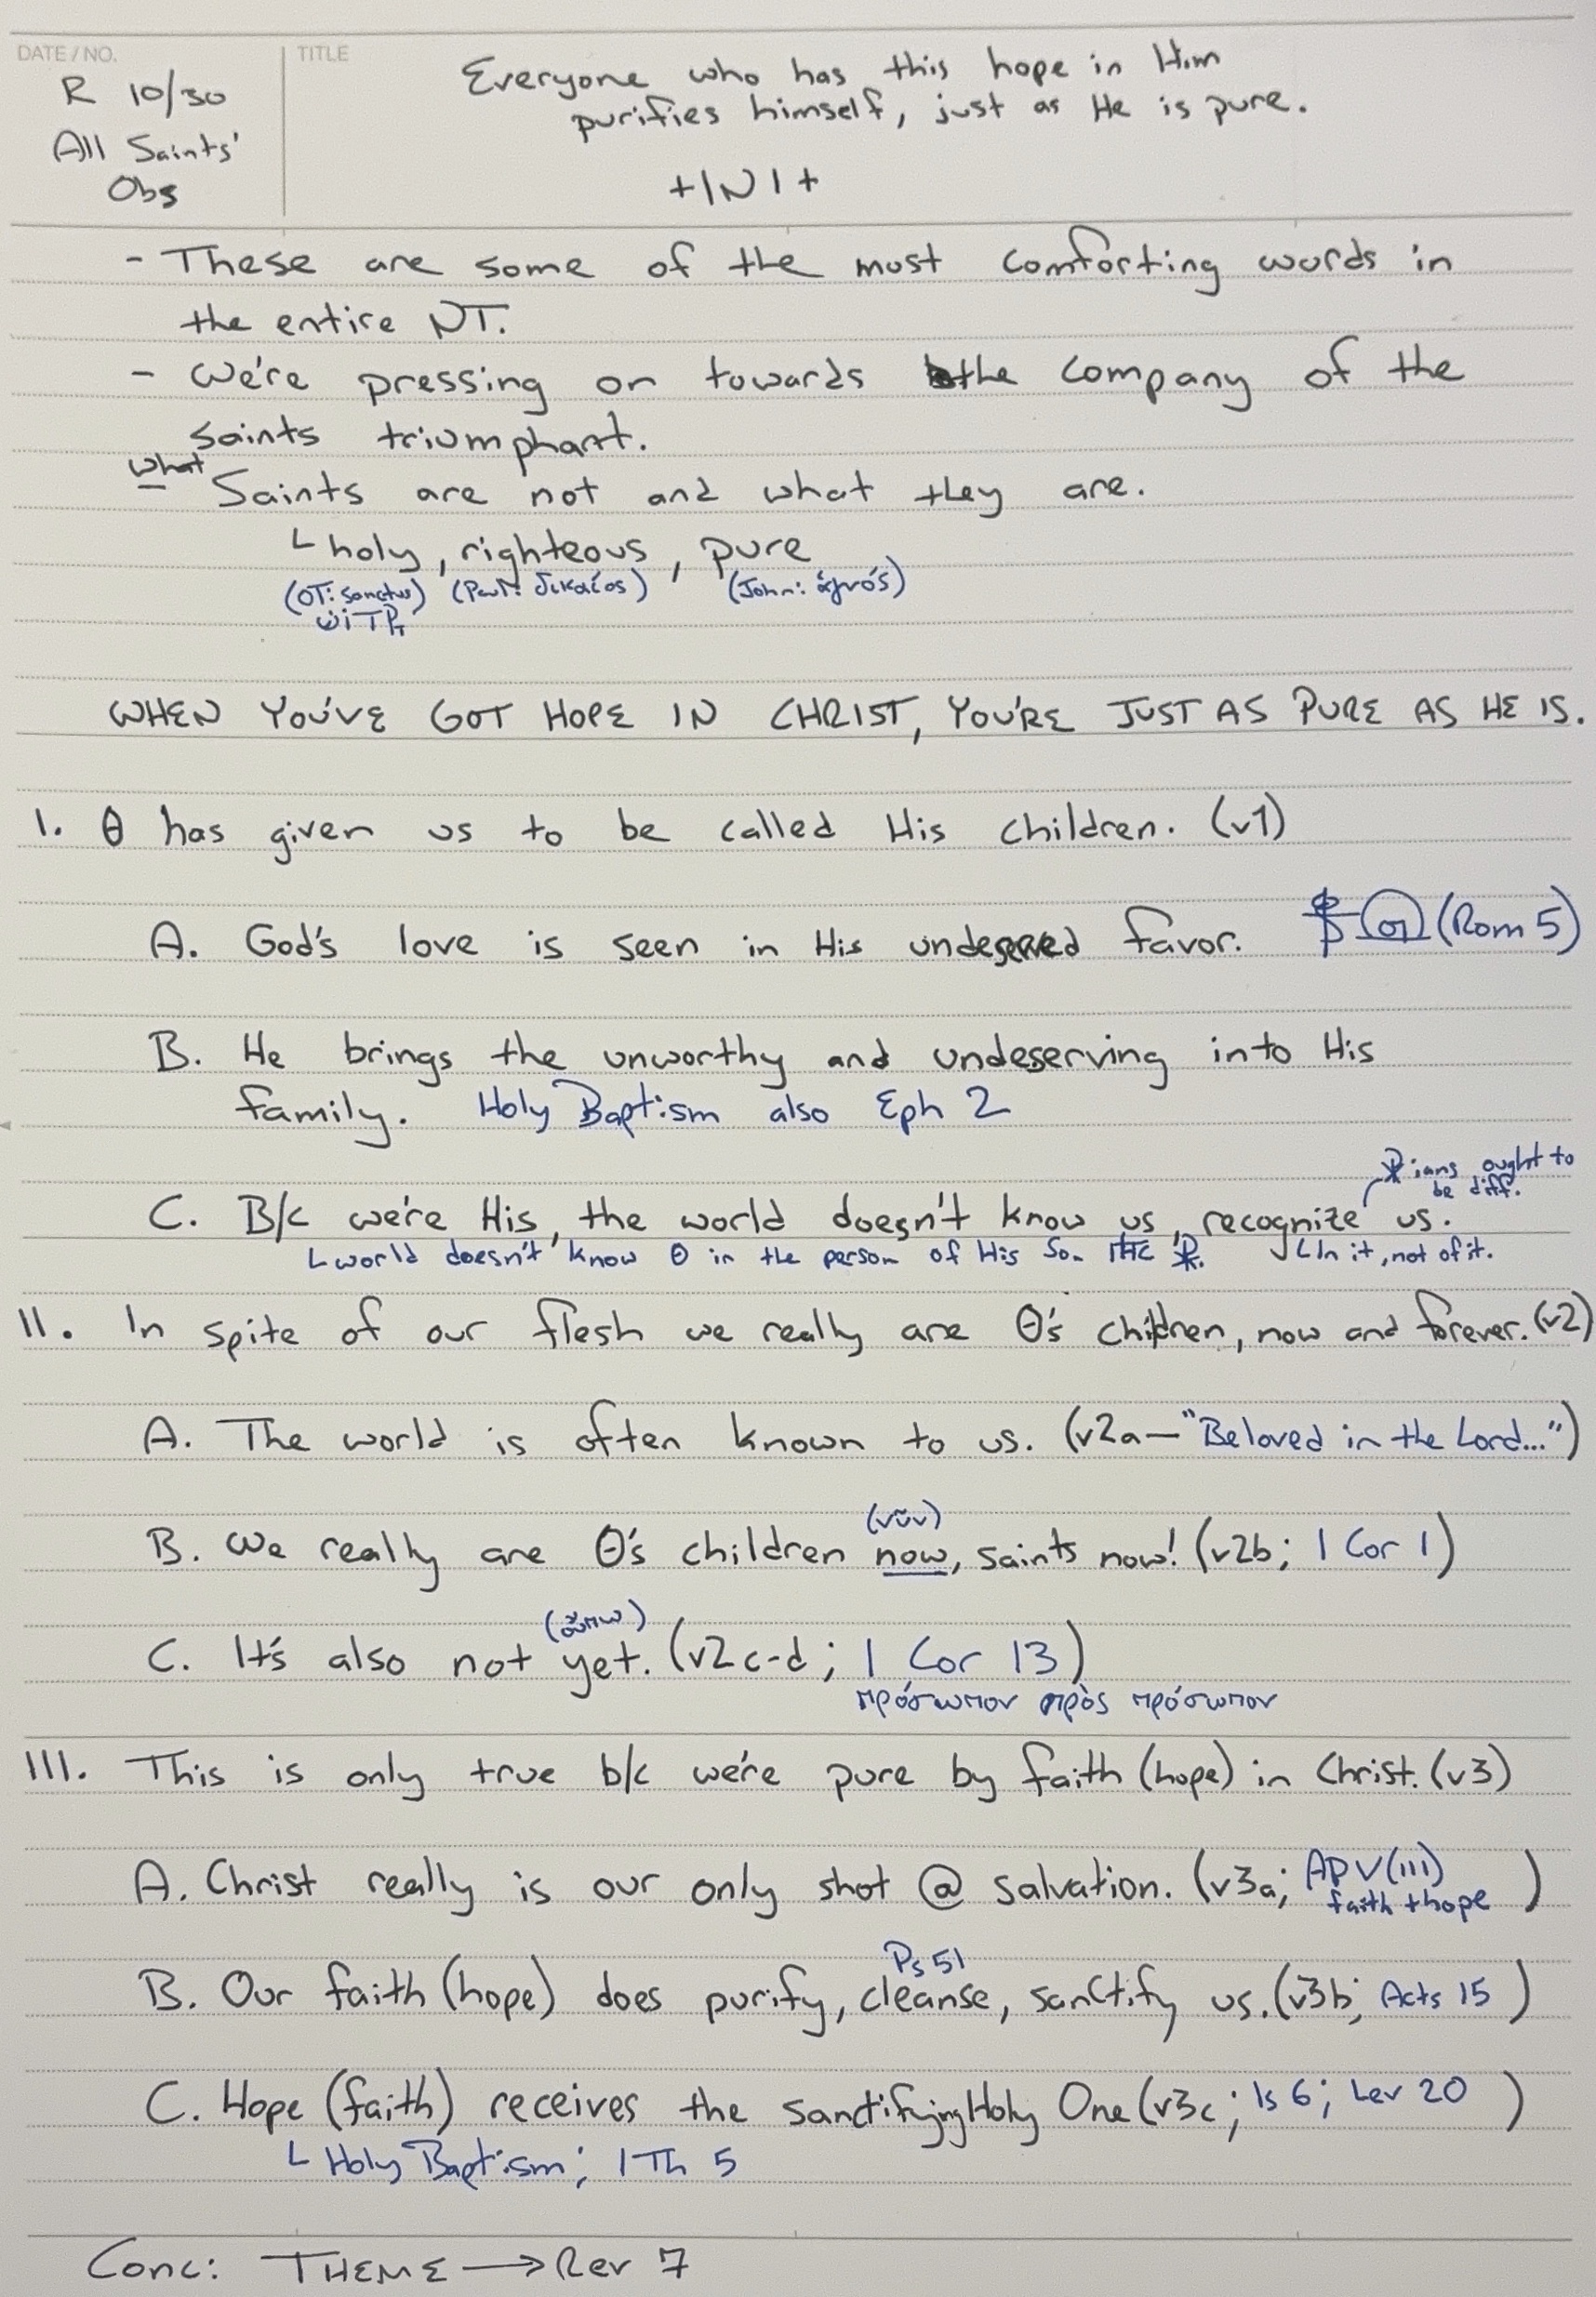 DATE / NO.
TITLE
R 10/30
All Saints'
Obs
Everyone who has this hope in Him
purifies himself, just as He is pure.
+INI+
- These are some of the most comforting words in
the entire NT.
- We're pressing on towards the company of the
saints triumphant.
what
Saints are not and what they are.
└ holy, righteous, pure
(OT: sanctus) (Paul: δικαίος) (John: ἁγνός)
WHEN YOU'VE GOT HOPE IN CHRIST, YOU'RE JUST AS PURE AS HE IS.
I. θ has given us to be called His children. (v1)
A. God's love is seen in His undeserved favor. (Rom 5)
B. He brings the unworthy and undeserving into His
family. Holy Baptism also Eph 2
☧ians ought to
be diff.
C. B/c we're His, the world doesn't know us, recognize us.
└ world doesn't know θ in the person of His Son IHC ☧. └ In it, not of it.
II. In spite of our flesh we really are θ's children, now and forever. (v2)
A. The world is often known to us. (v2a — "Beloved in the Lord...")
(νῦν)
B. We really are θ's children now, saints now! (v2b; 1 Cor 1)
(οὔπω)
C. It's also not yet. (v2c-d; 1 Cor 13)
πρόσωπον πρὸς πρόσωπον
III. This is only true b/c we're pure by faith (hope) in Christ. (v3)
A. Christ really is our only shot @ salvation. (v3a; AP V (III)
faith + hope )
Ps 51
B. Our faith (hope) does purify, cleanse, sanctify us. (v3b; Acts 15 )
C. Hope (faith) receives the sanctifying Holy One (v3c; Is 6; Lev 20 )
└ Holy Baptism; 1 Th 5
Conc: THEME → Rev 7